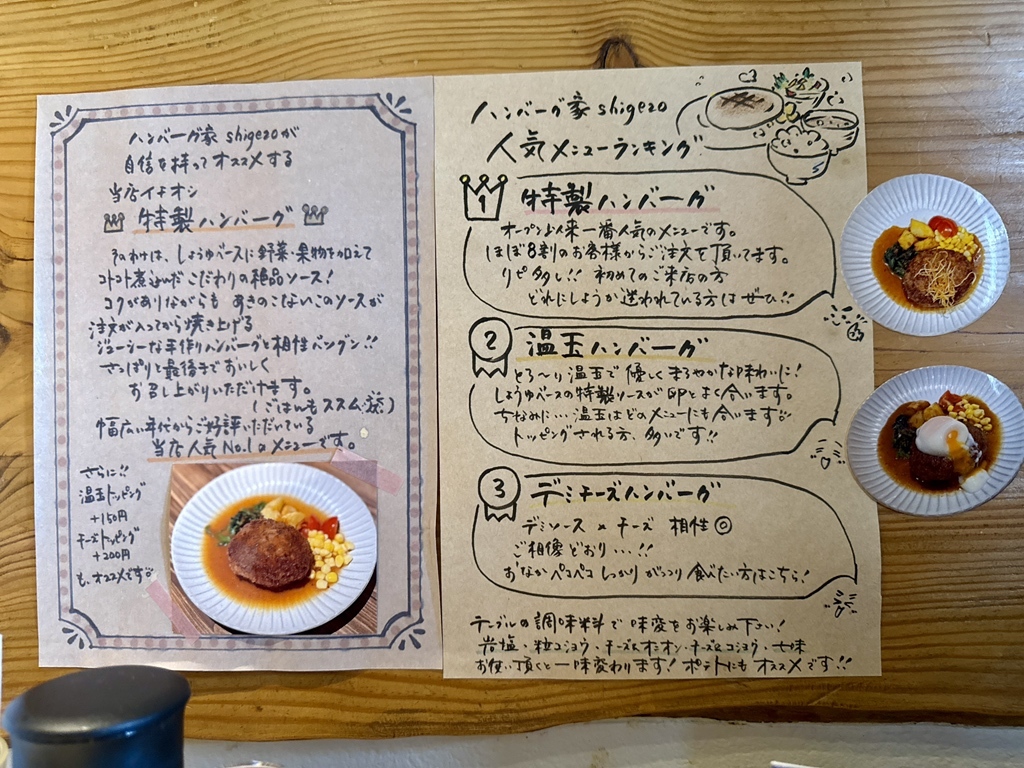 ハンバーグ家 shigezoが
自信を持ってオススメする
当店イチオシ
特製ハンバーグ
そのわけは、しょうゆベースに野菜・果物を加えて
コトコト煮込んだこだわりの絶品ソース!
コクがありながらも あきのこないこのソースが
注文が入ってから焼き上げる
ジューシーな手作りハンバーグと相性バツグン!!
さっぱりと最後までおいしく
お召し上がりいただけます。
(ごはんもススム
幅広い年代からご好評いただいている
当店人気No.1のメニューです。
さらに!!
温玉トッピング
+150円
チーズトッピング
+200円
も、オススメです
ハンバーグ家 shigezo
人気メニューランキング
1 特製ハンバーグ
オープン以来一番人気のメニューです。
ほぼ8割のお客様からご注文を頂いてます。
リピ多し!! 初めてのご来店の方
どれにしようか迷われている方はぜひ!!
2 温玉ハンバーグ
とろ〜り温玉で優しくまろやかな味わいに!
しょうゆベースの特製ソースが卵とよく合います。
ちなみに…温玉はどのメニューにも合います
トッピングされる方、多いです!!
3 デミチーズハンバーグ
デミソース × チーズ 相性◎
ご想像どおり…!!
おなかペコペコ しっかりガッツリ食べたい方はこちら!
テーブルの調味料で味変をお楽しみ下さい!
岩塩・粒コショウ・チーズ&オニオン・チーズ&コショウ・七味
お使い頂くと一味変わります! ポテトにもオススメです!!